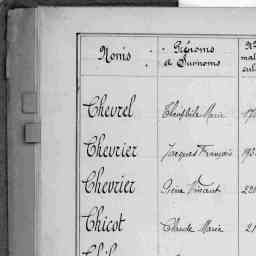 Noms Prénoms et Surnoms
Chevrel Théophile Marie
Chevrier Jacques François
Chevrier Pierre Vincent
Chicot Claude Marie